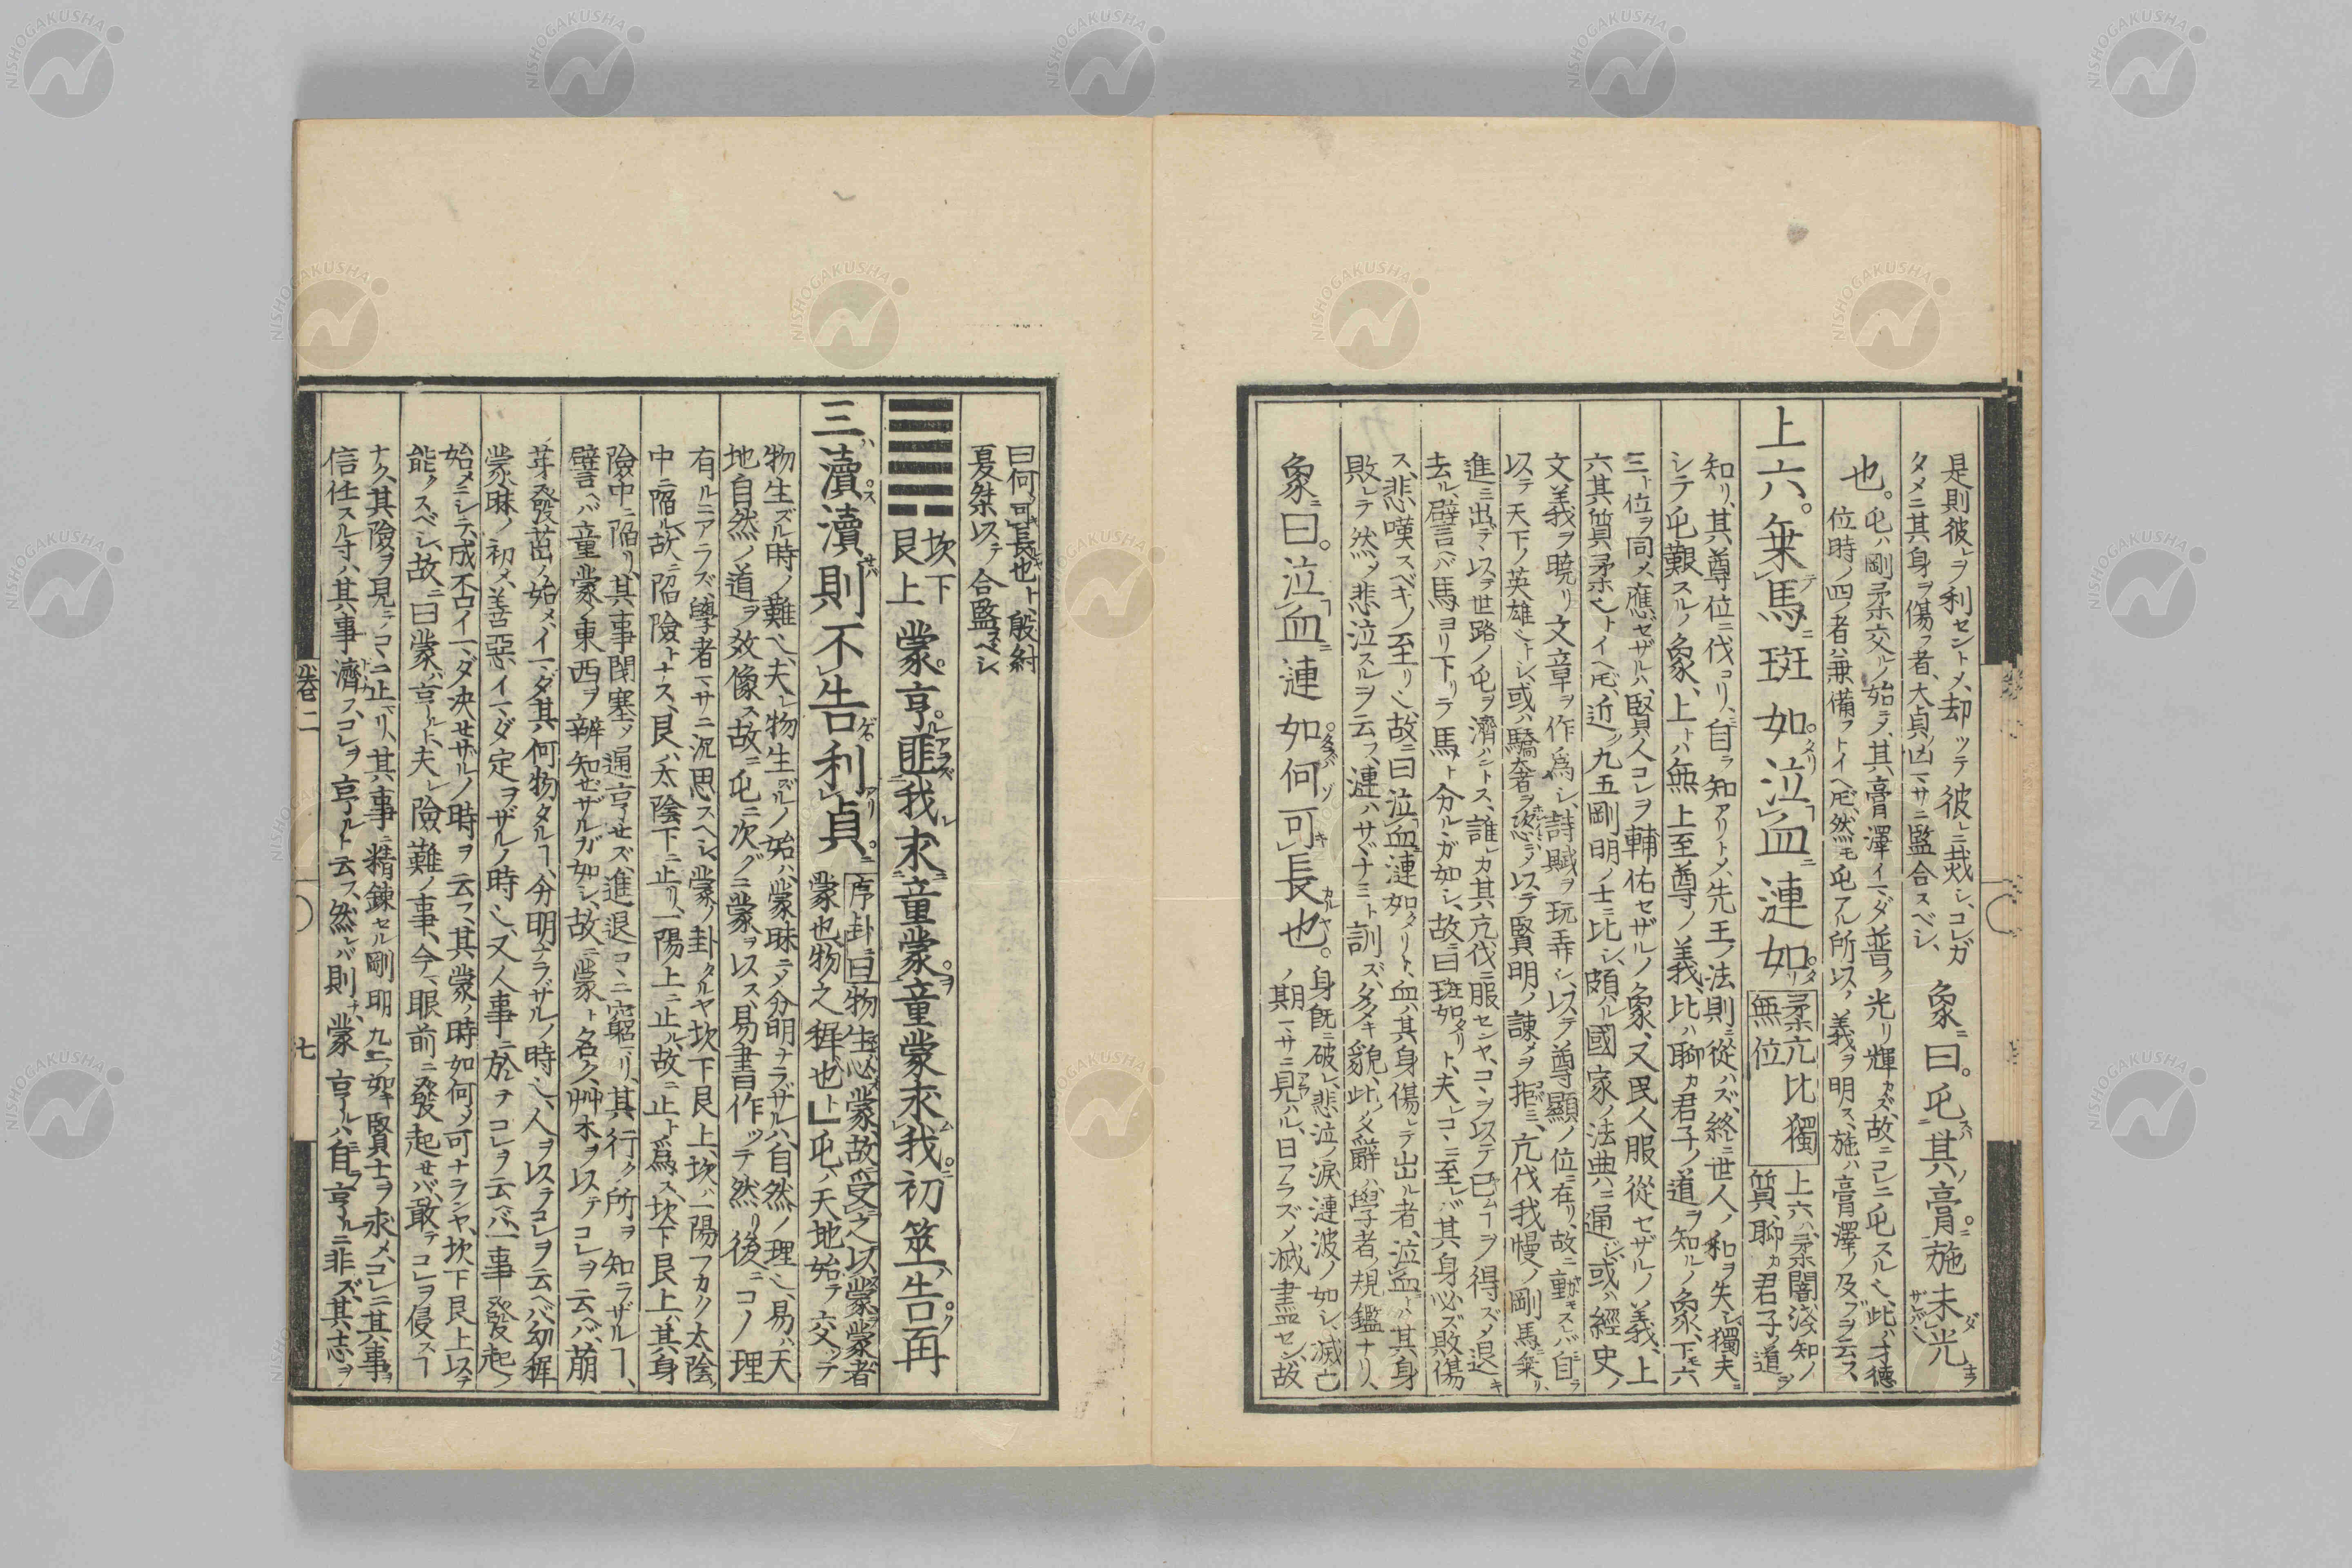 是則彼レヲ利セントメ、却ツテ彼レニ栽シ、コレガ
タメニ其身ヲ傷フ者、大貞ノ凶マサニ監合スベシ、
象ニ曰。屯ニハ其ノ膏。施ニ未ダ光キナラザレバ
也。
屯ハ剛柔交ルノ始ニメ、其膏澤イマダ普ク光リ輝カズ、故ニコレニ屯スル也、此ハ才德
位時ノ四ノ者ハ兼備フトイヘ𪜈、然モ屯アル所以ノ義ヲ明ス、施ハ膏澤ノ及ブヲ云ス、
上六。乗馬ニテ斑如。タリ泣血ニ漣如。タリ
柔亢比獨
無位
上六ハ柔闇淺知ノ
質、聊カ君子ノ道ヲ
知リ、其尊位ニ伐コリ、自ラ知アリトメ、先王ノ法則ニ從ハズ、終ニ世人ノ和ヲ失シ、獨夫ニ
シテ屯艱スルノ象、上トハ無上至尊ノ義、比ハ聊カ君子ノ道ヲ知ルノ象、下モ六
三ト位ヲ同メ應ゼザルハ、賢人コレヲ輔佑セザルノ象、又民人服從セザルノ義、上
六其質柔也トイヘ𪜈、近ク九五剛明ノ士ニ比シ、頗ル國家ノ法典ニ通ジ、或ハ經史ノ
文義ヲ暁リ文章ヲ作爲シ、詩賦ヲ玩弄シ、以テ尊顯ノ位ニ在リ、故ニ動モスレバ自ラ
以テ天下ノ英雄也トシ、或ハ驕奢ヲ恣ニメ、以テ賢明ノ諫メヲ拒ミ、亢伐我慢ノ剛馬ニ乗リ、
進ミ出デ、以テ世路ノ屯ヲ濟ハントス、誰レカ其亢伐ニ服センヤ、コヽヲ以テ已ムヿヲ得ズメ退キ
去ル、譬言ハ馬ヨリ下リテ馬ト分ルヽガ如シ、故ニ曰班如タリト、夫レコヽニ至レバ其身必ズ敗傷
ス、悲嘆スベキノ至リ也、故ニ曰泣血漣如タリト、血ハ其身傷レテ出ル者、泣血トハ其身
敗レテ然メ悲泣スルヲ云フ、漣ハサヾナミト訓ズ、
象ニ曰。泣血ニ漣如。タラバ何ゾ可キ長カルヤ也。
身旣ニ破レ、悲泣ノ涙漣波ノ如シ、滅亡
ノ期マサニ見ハル、日アラズメ滅盡セン、故
曰何ゾ可キ長カル也ト、殷紂
夏桀以テ合監スベシ
坎下
艮上
蒙。亨。ルアラズ匪我ル求ニ童蒙。ヲ童蒙求ム我。ニ初筮ハ告。グ再
三スレバ瀆。ス瀆セバ則不告ゲ。利アリ貞。ニ
序卦曰物生必蒙、故受之以蒙蒙者
蒙也、物之穉也ト」屯ハ天地始テ交ツテ
物生ズル時ノ難也、夫レ物生ズルノ始ハ、蒙昧ニメ分明ナラザルハ自然ノ理也、易ハ天
地自然ノ道ヲ效像ス、故ニ屯ニ次グニ蒙ヲ以ス、易書作ツテ然リ後ニコノ理
有ルニアラズ、學者マサニ況思スヘシ、蒙ノ卦タルヤ坎下艮上、坎ハ一陽フカク太陰ノ
中ニ陷ル、故ニ陷險トナス、艮ハ太陰下ニ止リ、一陽上ニ止ル、故ニ止ト爲ス、坎下艮上ハ其身
險中ニ陷リ、其事閉塞メ通亨セズ、進退コヽニ窮リ、其行ク所ヲ知ラザルヿ、
譬言ハ童蒙ノ東西ヲ辨知セザルガ如シ、故ニ蒙ト名ク、艸木ヲ以テコレヲ云ヘバ、萠
芽發茁ノ始メ、イマダ其何物タルヿ、分明ナラザルノ時也、人ヲ以テコレヲ云ヘバ幼穉
蒙昧ノ初メ、善惡イマダ定ヲザルノ時也、又人事ニ於テコレヲ云バ、一事發起ノ
始メニシテ、成不𠮷イマダ決セザルノ時ヲ云フ、其蒙ノ時如何メ可ナランヤ、坎下艮上以テ
能クスベシ、故ニ曰蒙ハ亨ルト、夫レ險難ノ事、今マ眼前ニ發起セバ、敢テコレヲ侵スヿ
ナク、其險ヲ見テコヽニ止マリ、其事ニ精鍊セル剛明九二ノ如キ賢士ヲ求メ、コレニ其事ヲ
信任スル寸ハ、其事濟フ、コレヲ亨ルト云フ、然レバ則チ蒙亨ルハ自ラ亨ルニ非ズ、其志ヲ
卷二
七